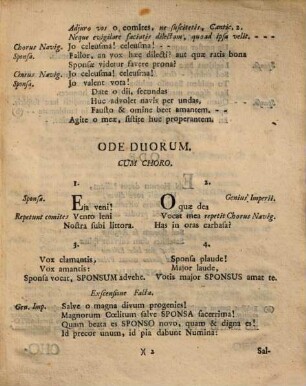 Adjuro vos o comites, ne suscitetis, Cantic. 2.
Neque evigilare faciatis dilectam, quoad ipsa velit. - -
Chorus Navig. Jo celeusma! celeusma! - -
Sponsa. Fallor, an vox hæc dilecti? aut quæ ratis bona
Sponsæ videtur favere prona?
Chorus Navig. Jo celeusma! celeusma!
Sponsa. Jo valent vota!
Date o dii, secundas
Huc advolet navis per undas,
Fausto & omine beet amantem. - -
Agite o meæ, sistite huc properantem.
ODE DUORUM.
CUM CHORO.
1. 2.
Sponsa. Eia veni! O quæ dea Genius Imperii.
Repetunt comites Vento leni Vocat mea repetit Chorus Navig.
Nostra subi littora. Has in oras carbasa?
3. 4.
Vox clamantis, Sponsa plaude!
Vox amantis: Major laude,
Sponsa vocat, SPONSUM advehe. Votis major SPONSUS amat te.
Exscensione Facta.
Gen. Imp. Salve o magna divum progenies!
Magnorum Cœlitum salve SPONSA sacerrima!
Quam beata es SPONSO novo, quam & digna es!
Id precor unum, id pia dabunt Numina!
X 2 Sal-